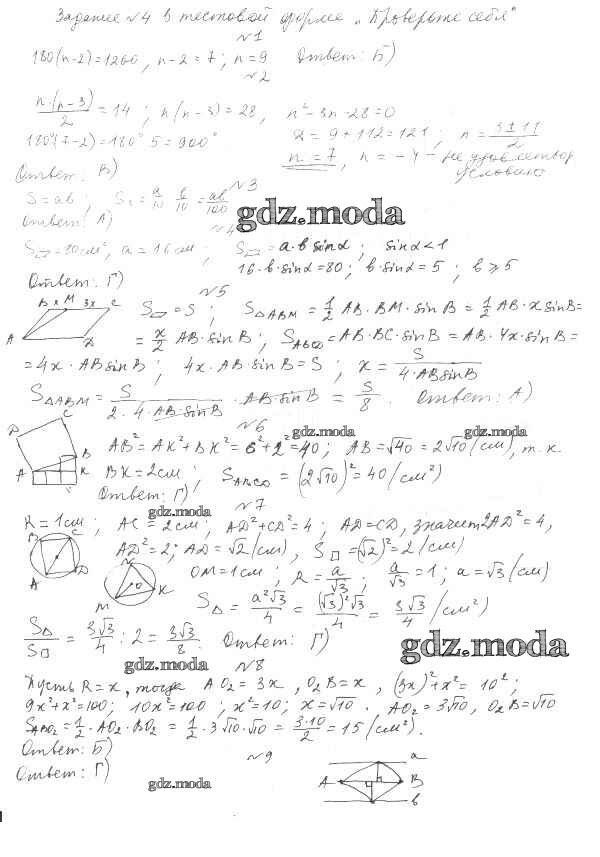 Задание №4 в тестовой форме „Проверьте себя"
№1
180(n-2)=1260, n-2=7; n=9 Ответ: Б)
№2
n·(n-3)/2 =14; n(n-3)=28, n²-3n-28=0
180°(7-2)=180°·5=900° D=9+112=121; n=(3±11)/2
n=7, n=-4 - не удовлетвор.
условию
Ответ: В)
№3
S=ab; S₁= a/10 · b/10 = ab/100
gdz.moda
Ответ: А)
№4
S▱=80см², a=16см; S▱=a·b sinα; sinα<1
16·b·sinα=80; b·sinα=5; b⩾5
Ответ: Г)
№5
B x M 3x C
A D
S▱=S; S△ABM=1/2 AB·BM·sin B=1/2 AB·x sin B=
=x/2 AB·sin B; S_ABCD=AB·BC·sin B=AB·4x·sin B=
=4x·AB sin B; 4x·AB·sin B=S; x=S/(4·AB sin B)
S△ABM=S/(2·4·AB·sin B)·AB·sin B=S/8. Ответ: А)
№6
gdz.moda
gdz.moda
D C B A K
AB²=AK²+BK²=6²+2²=40; AB=√40=2√10 (см), т.к.
BK=2см; S_ABCD=(2√10)²=40(см²)
Ответ: Г)
№7
gdz.moda
R=1см; AC=2см; AD²+CD²=4; AD=CD, значит 2AD²=4,
B C A D
AD²=2; AD=√2(см), S□=(√2)²=2(см)
N O K M
OM=1см; R=a/√3; a/√3=1; a=√3(см)
S△=a²√3/4=(√3)²√3/4=3√3/4 (см²)
S△/S□=3√3/4:2=3√3/8. Ответ: Г)
gdz.moda
gdz.moda
№8
Пусть R=x, тогда AO₂=3x, O₂B=x, (3x)²+x²=10²;
9x²+x²=100; 10x²=100; x²=10; x=√10. AO₂=3√10, O₂B=√10
S_ABO₂=1/2·AO₂·BO₂=1/2·3√10·√10=3·10/2=15(см²).
Ответ: Б)
№9
Ответ: Г)
gdz.moda
a
A B
b